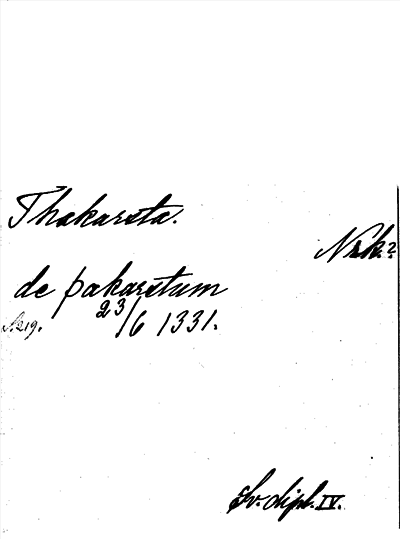 Thakarsta.
Nrk.?
de þakarstum
23/6 1331.
Sv. dipl. IV.